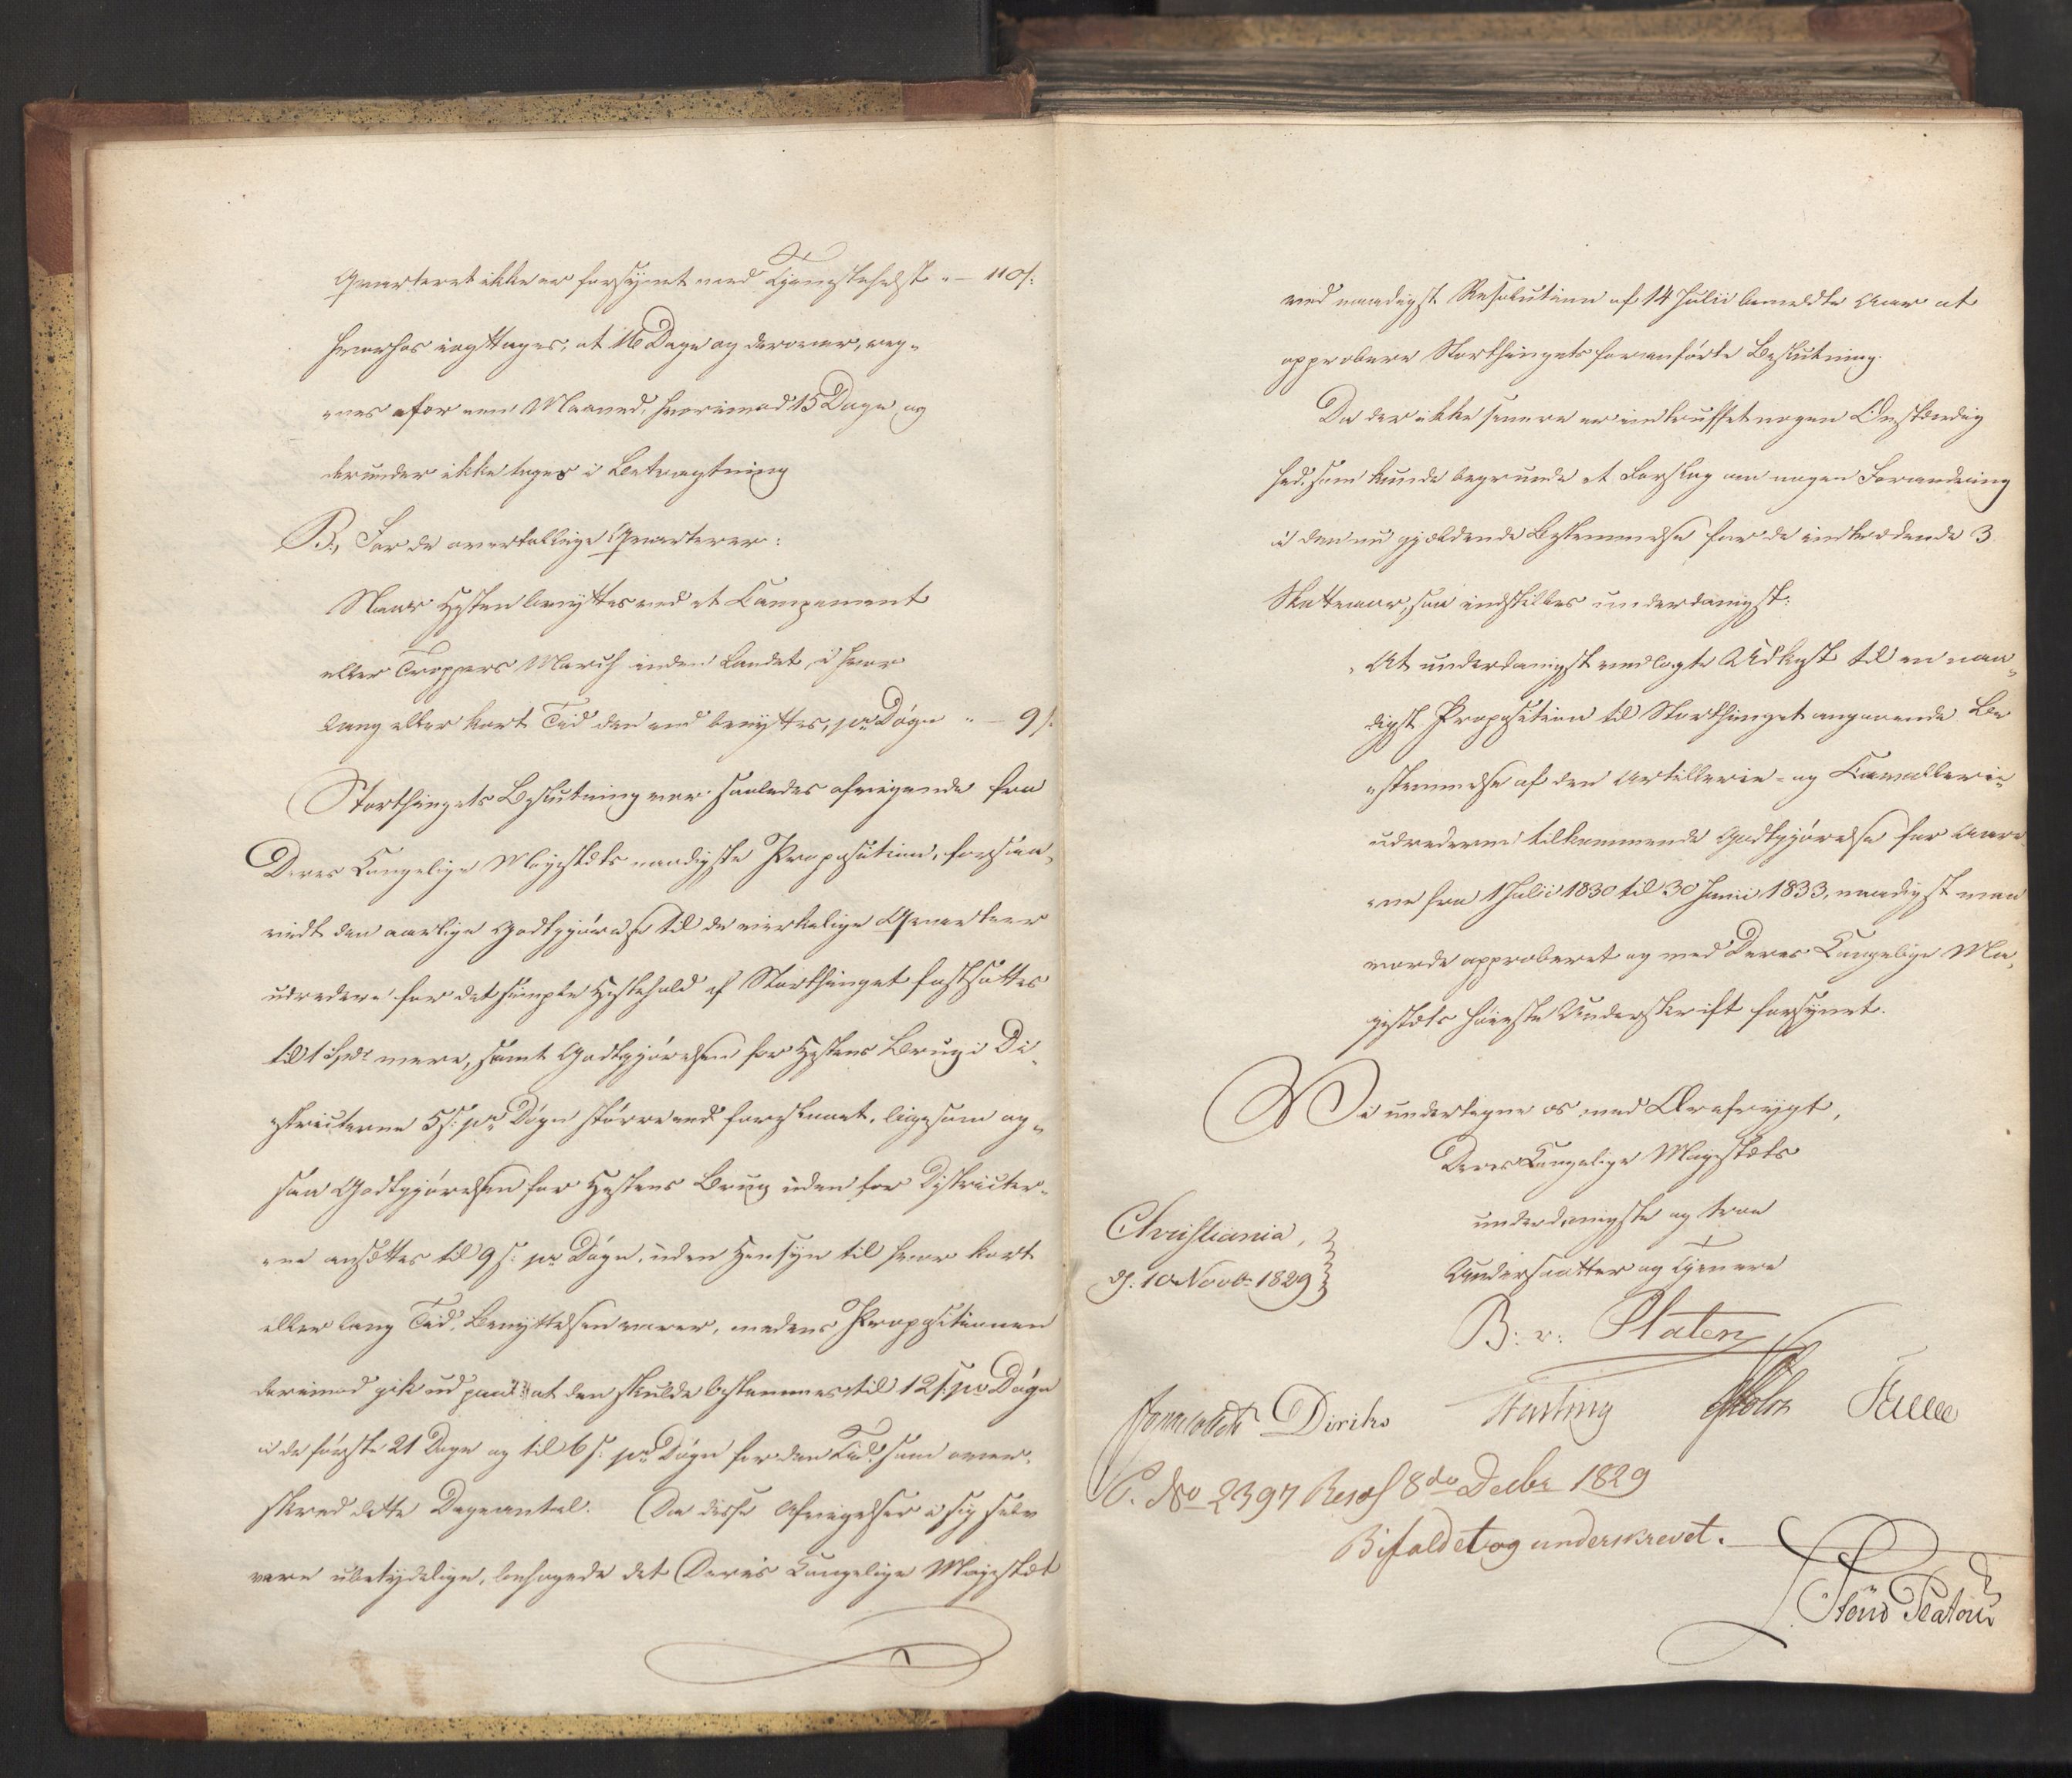 Qvarteret ikke er forsynet med Tjenestehest „ — 110 s:
hvorhos iagttages, at 16 Dage og derover, reg„
„nes for een Maaned, hvorimod 15 Dage og
derunder ikke tages i Betragtning
B., For de overtallige Qvarterer:
Naar Hesten benyttes ved et Campement
eller Troppers March inden Landet, i hvor
lang eller kort Tid den end benyttes, pr Døgn „ — 9 s.
Storthingets Beslutning var saaledes afvigende fra
Deres Kongelige Majestæts naadigste Proposition, forsaa„
vidt den aarlige Godtgjørelse til de virkelige Qvarteer
udredere for det simple Hestehold af Storthinget fastsattes
til 1 Spd mere, samt Godtgjørelsen for Hestens Brug i Di„
„stricterne 5 s: pr Døgn større end foreslaaet, ligesom og„
saa Godtgjørelsen for Hestens Brug uden for Districter„
„ne ansattes til 9 s: pr Døgn, uden Hensyn til hvor kort
eller lang Tid, Benyttelsen varer, medens Propositionen
derimod gik ud paa: at den skulde bestemmes til 12 s. pr Døgn
i de første 21 Dage og til 6 s: pr Døgn for den Tid som over„
skred dette Dageantal. Da disse Afvigelser i sig selv
vare ubetydelige, behagede det Deres Kongelige Majestæt
ved naadigst Resolution af 14 Julii bemeldte Aar at
approbere Storthingets foranførte Beslutning.
Da der ikke senere er indtruffet nogen Omstændig
hed, som kunde begrunde et Forslag om nogen Forandring
i den nu gjældende Bestemmelse for de indtrædende 3
Skatteaar, saa indstilles underdanigst:
At underdanigst vedlagte Udkast til en naa„
digst Proposition til Storthinget angaaende Be
„stemmelse af den Artillerie- og Cavallerie
udrederne tilkommende Godtgjørelse for Aare
„ne fra 1 Julii 1830 til 30 Junii 1833, naadigst maa
vorde approberet og med Deres Kongelige Ma„
jestæts høieste Underskrift forsynet.
Vi undertegne os med Ærefrygt,
Deres Kongelige Majestæts
underdanigste og troe
Christiania,
Undersaatter og Tjenere
d: 10 Novbr 1829
B: v: Platen
Sommerhielm Diriks Fasting Holst Falbe
C. No 2397 Resol 8de Decbr 1829
Bifaldet og underskrevet.